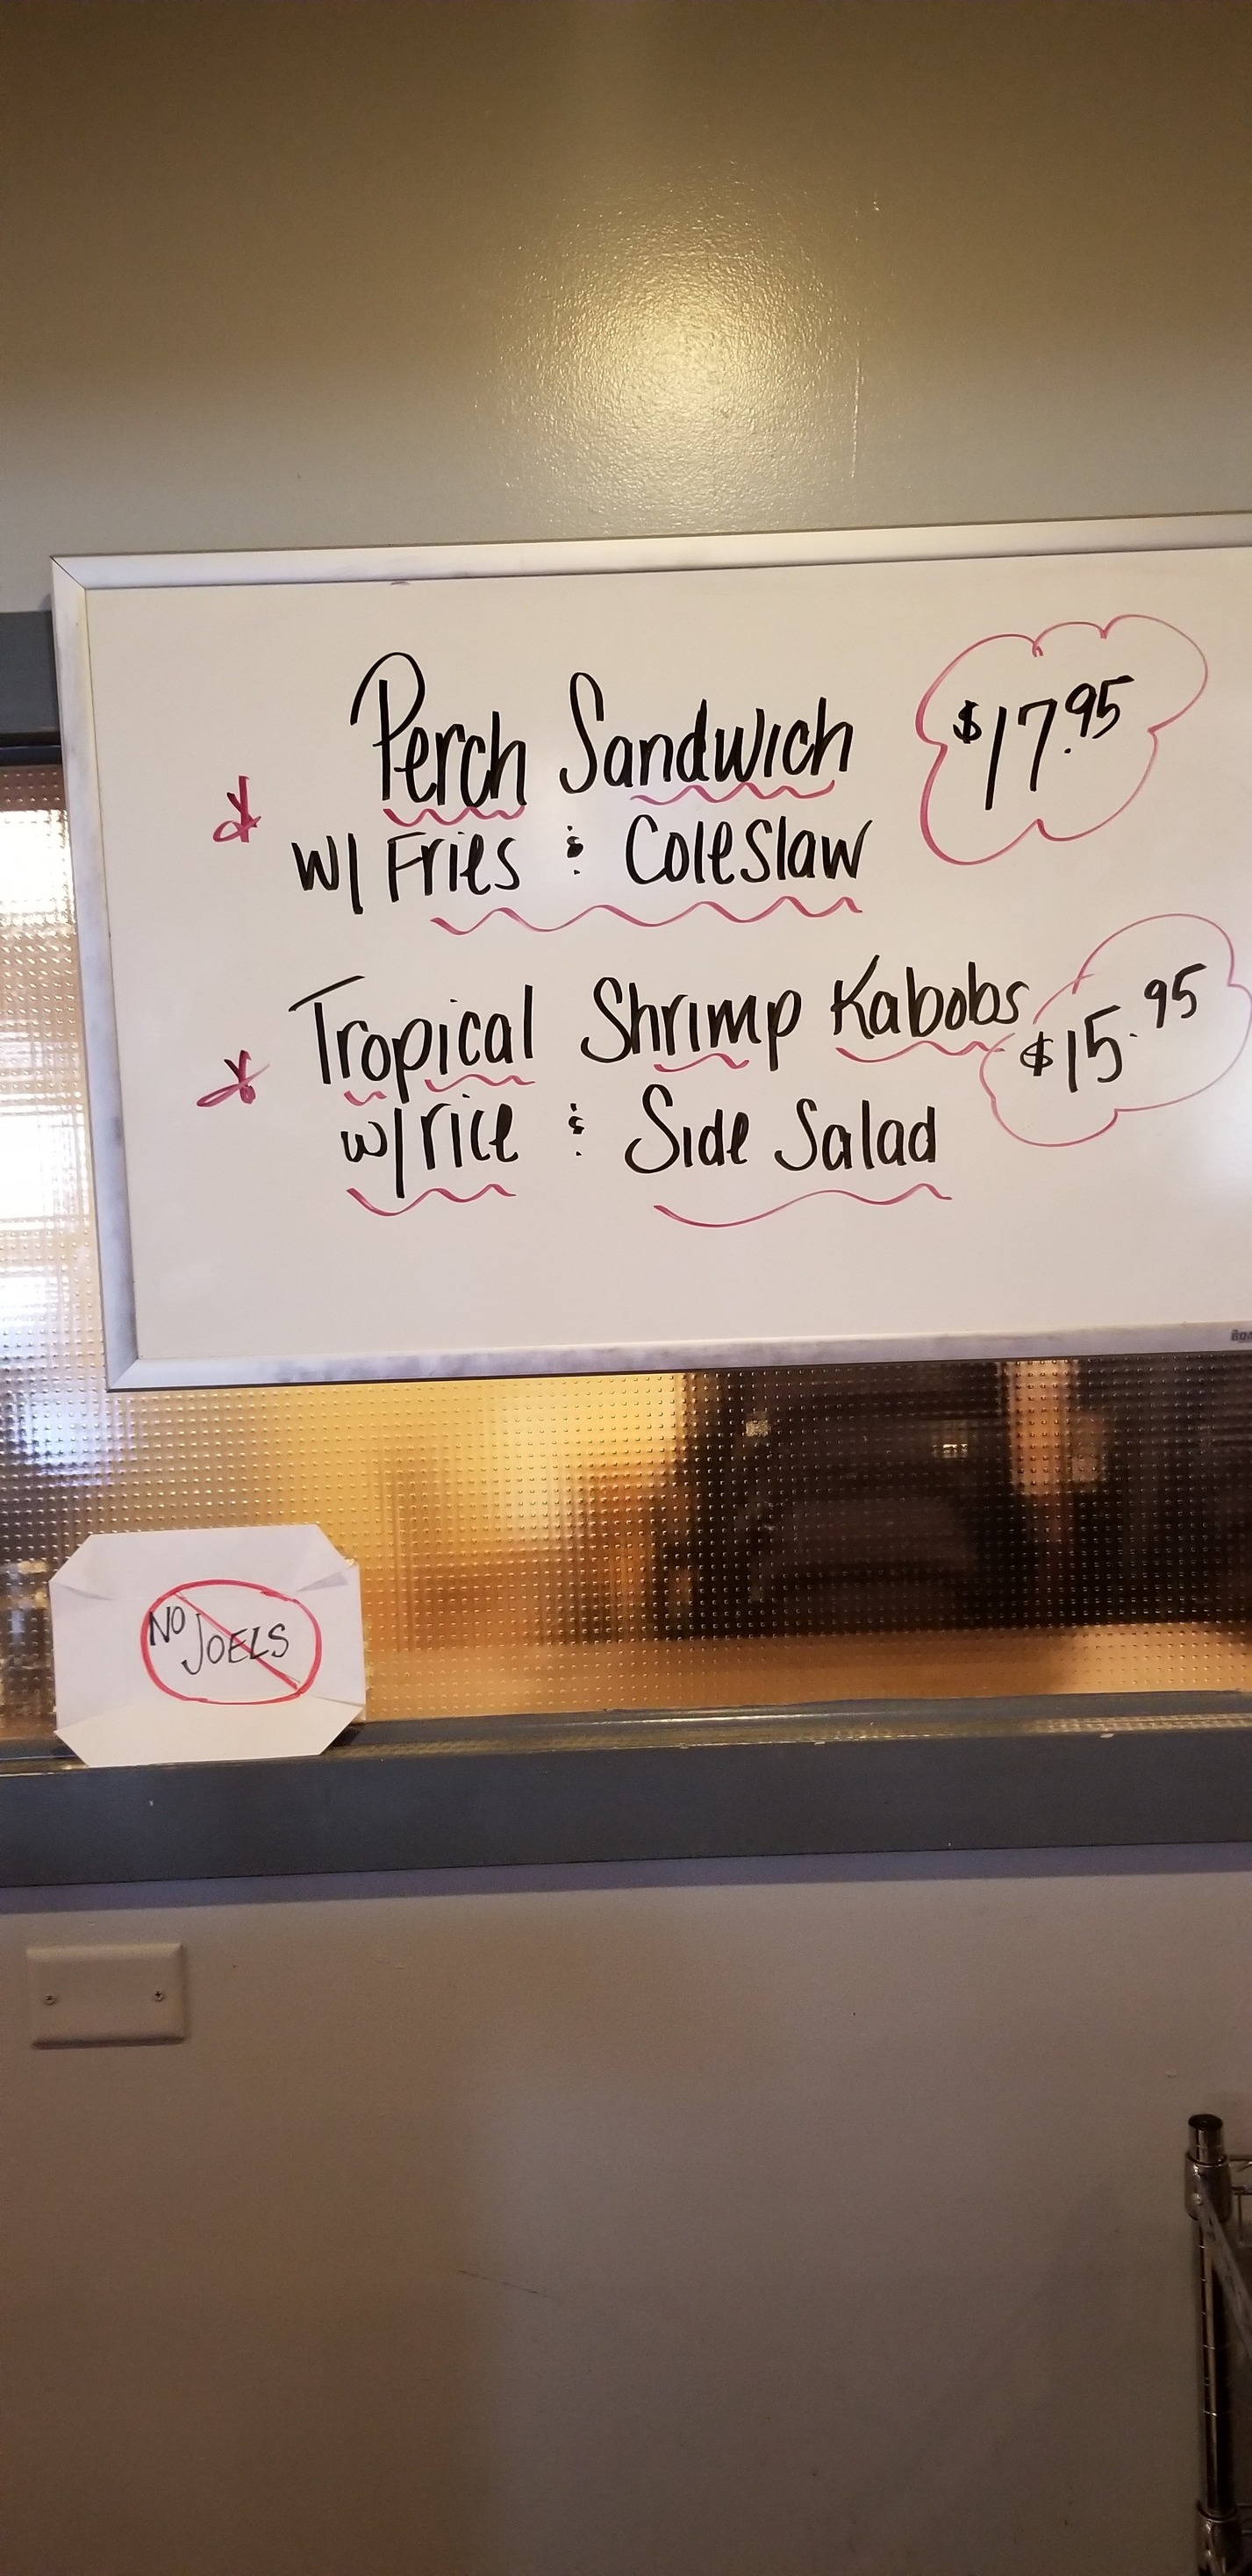 Perch Sandwich $17.95
w/ Fries & Coleslaw
Tropical Shrimp Kabobs $15.95
w/ rice & Side Salad
NO JOELS